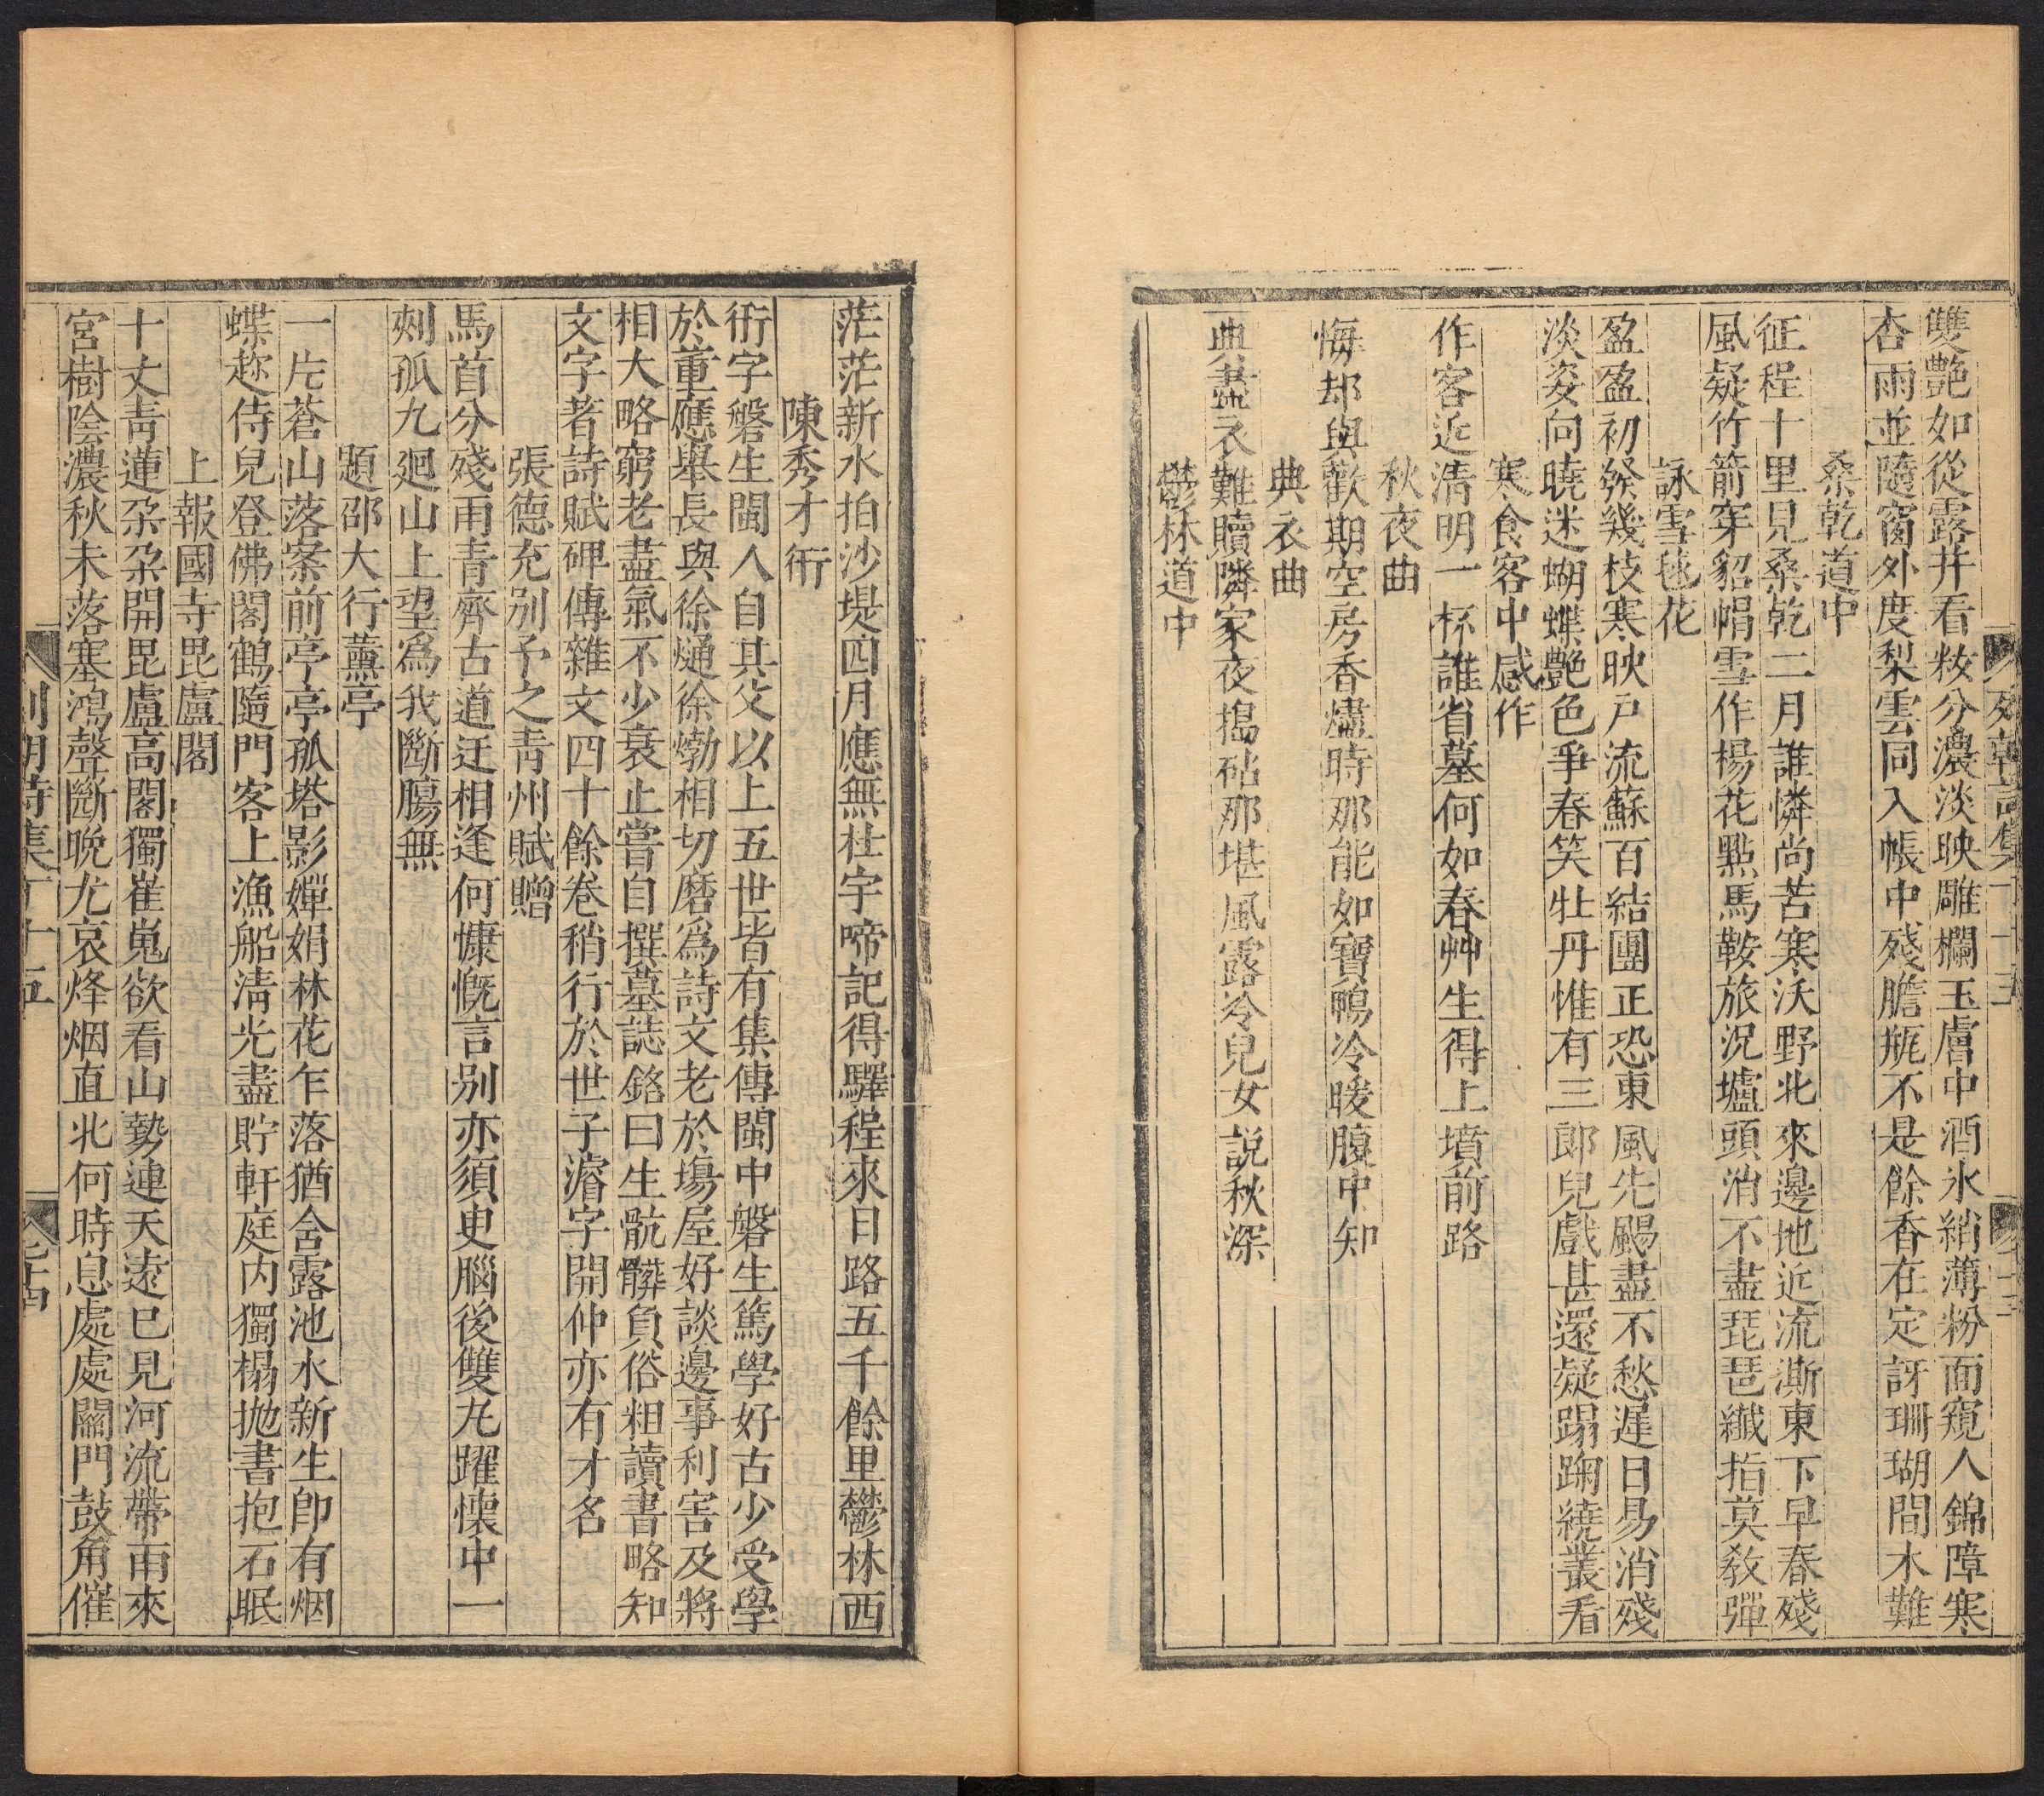 雙艷如從露井看妝分濃淡映雕欄玉膚中酒氷綃薄粉面窺人錦障寒
杏雨並隨窗外度梨雲同入帳中殘膽瓶不是餘香在定訝珊瑚間木難
桑乾道中
征程十里見桑乾二月誰憐尚苦寒沃野北來邊地近流澌東下早春殘
風疑竹箭穿貂帽雪作楊花點馬鞍旅況壚頭消不盡琵琶纖指莫教彈
詠雪毬花
盈盈初發幾枝寒映戶流蘇百結團正恐東風先颺盡不愁遲日易消殘
淡姿向曉迷蝴蝶艷色爭春笑牡丹惟有三郎兒戲甚還疑蹋踘繞叢看
寒食客中感作
作客近清明一杯誰省墓何如春艸生得上墳前路
秋夜曲
悔却與歡期空房香燼時那能如寶鴨冷暖腹中知
典衣曲
典盡衣難贖隣家夜搗砧那堪風露冷兒女説秋深
鬱林道中
列朝詩集丁十五
茫茫新水拍沙堤四月應無杜宇啼記得驛程來日路五千餘里鬱林西
陳秀才衎
衎字磐生閩人自其父以上五世皆有集傳閩中磐生篤學好古少受學
於董應舉長與徐熥徐𤊹相切磨爲詩文老於塲屋好談邊事利害及將
相大略窮老盡氣不少衰止嘗自撰墓誌銘曰生骯髒負俗粗讀書略知
文字著詩賦碑傳雜文四十餘卷稍行於世子濬字開仲亦有才名
張德充别予之靑州賦贈
馬首分殘雨青齊古道迂相逢何慷慨言别亦須臾腦後雙丸躍懷中一
剡孤九廻山上望爲我斷腸無
題邵大行薰亭
一片蒼山落案前亭亭孤塔影嬋娟林花乍落猶含露池水新生卽有烟
蝶趂侍兒登佛閣鶴隨門客上漁船淸光盡貯軒庭内獨榻抛書抱石眠
上報國寺毘盧閣
十丈靑蓮朶朶開毘盧高閣獨崔嵬欲看山勢連天遠巳見河流帶雨來
宮樹陰濃秋未落塞鴻聲斷晩尤哀烽烟直北何時息處處關門鼓角催
列朝詩集丁十五